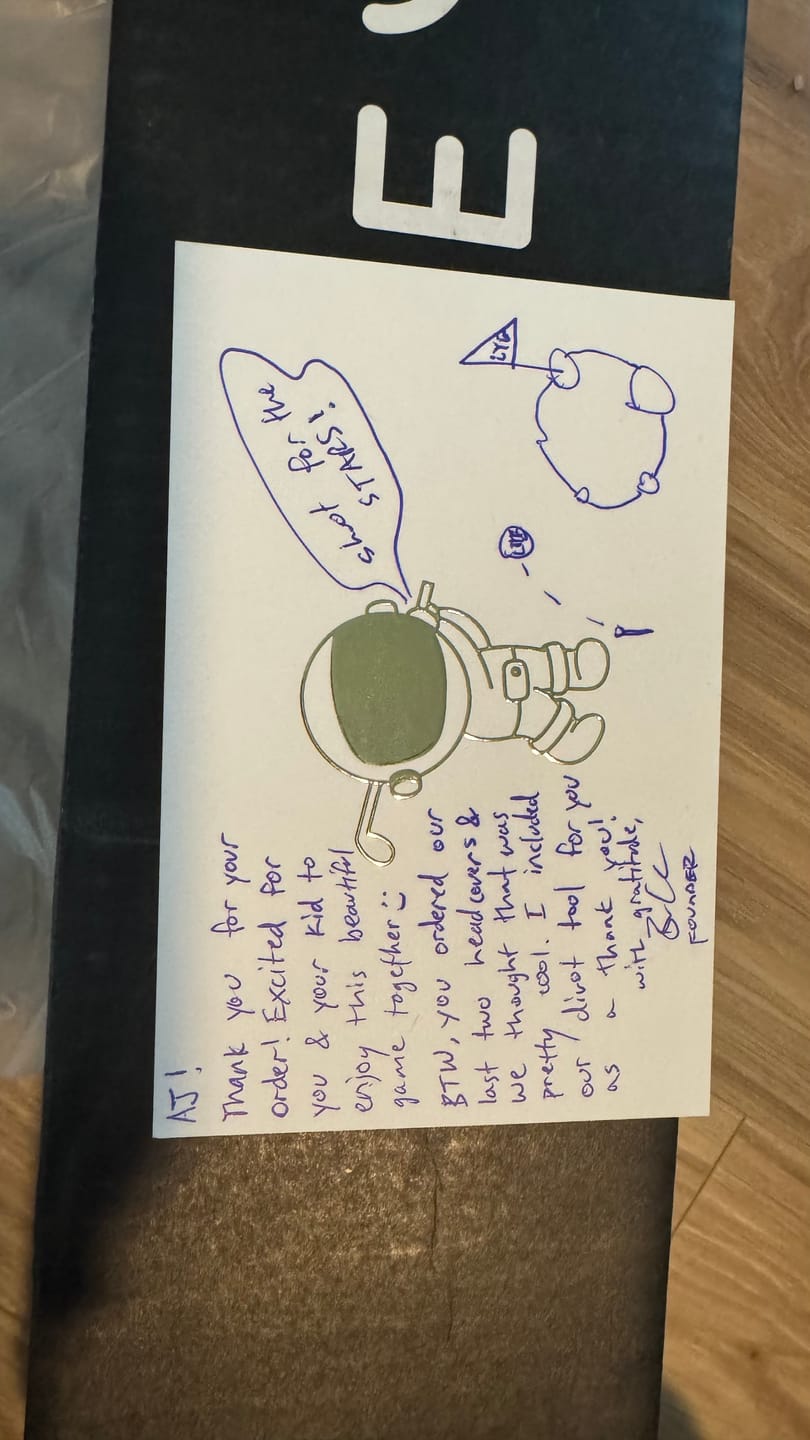 E
AJ!
Thank you for your
order! Excited for
you & your kid to
enjoy this beautiful
game together :)
BTW, you ordered our
last two headcovers &
we thought that was
pretty cool. I included
our divot tool for you
as a thank you!
with gratitude,
FOUNDER
shoot for the
STARS!
LYE
LYE